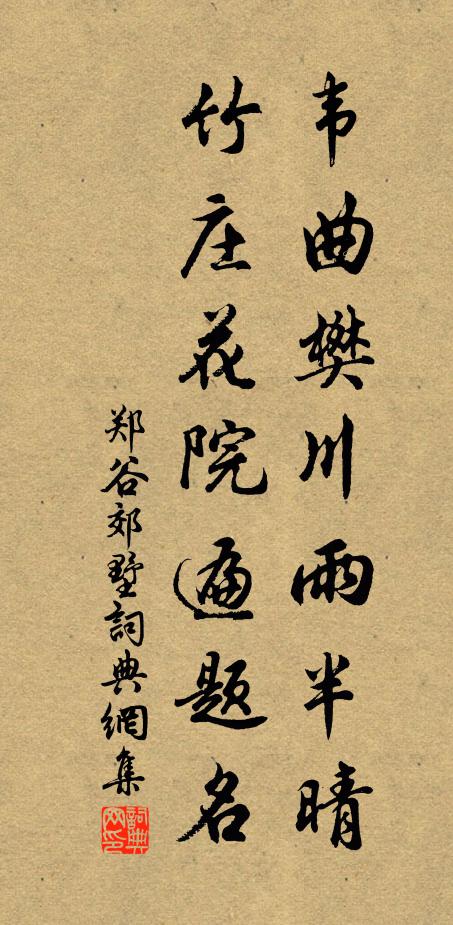 韦曲樊川雨半晴
竹庄花院遍题名
郑谷郊墅詞典網集
詞典网印